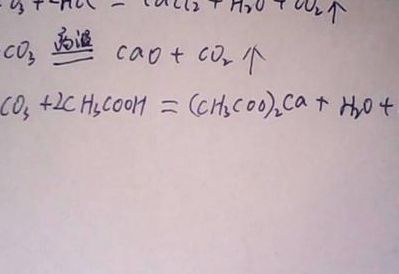 O₃ + 2HCl = CaCl₂ + H₂O + CO₂↑
CO₃ 高温 ═══ CaO + CO₂ ↑
CO₃ + 2CH₃COOH = (CH₃COO)₂Ca + H₂O +